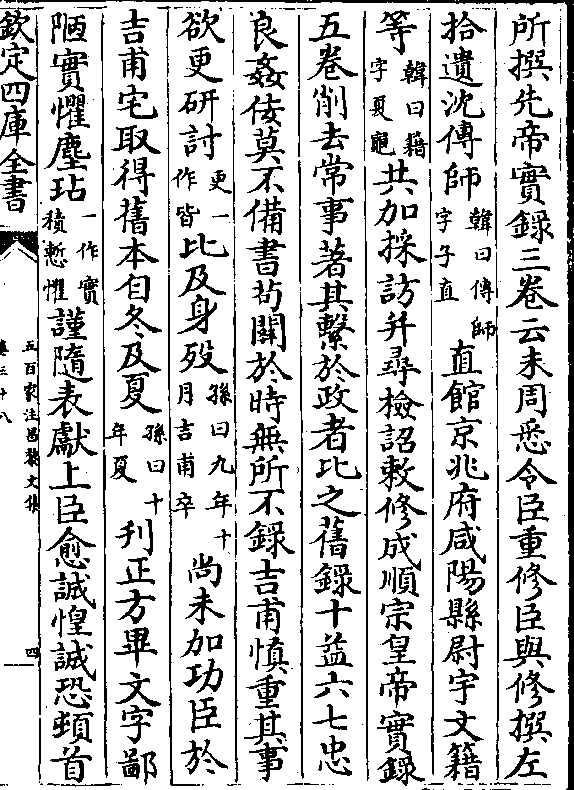 所撰先帝實錄三卷云未周悉令臣重修臣與修撰左
拾遺沈傳師韓曰傳師字子直直館京兆府咸陽縣尉宇文籍
等韓曰籍字夏龜共加採訪并尋檢詔敕修成順宗皇帝實錄
五卷削去常事著其繫於政者比之舊錄十益六七忠
良姦佞莫不備書苟關於時無所不錄吉甫慎重其事
欲更研討更一作皆比及身歿孫曰九年十月吉甫卒尚未加功臣於
吉甫宅取得舊本自冬及夏孫曰十年夏刋正方畢文字鄙
陋實懼塵玷一作實積慙懼謹隨表獻上臣愈誠惶誠恐頓首
欽定四庫全書
五百家注昌黎文集
卷三十八
四